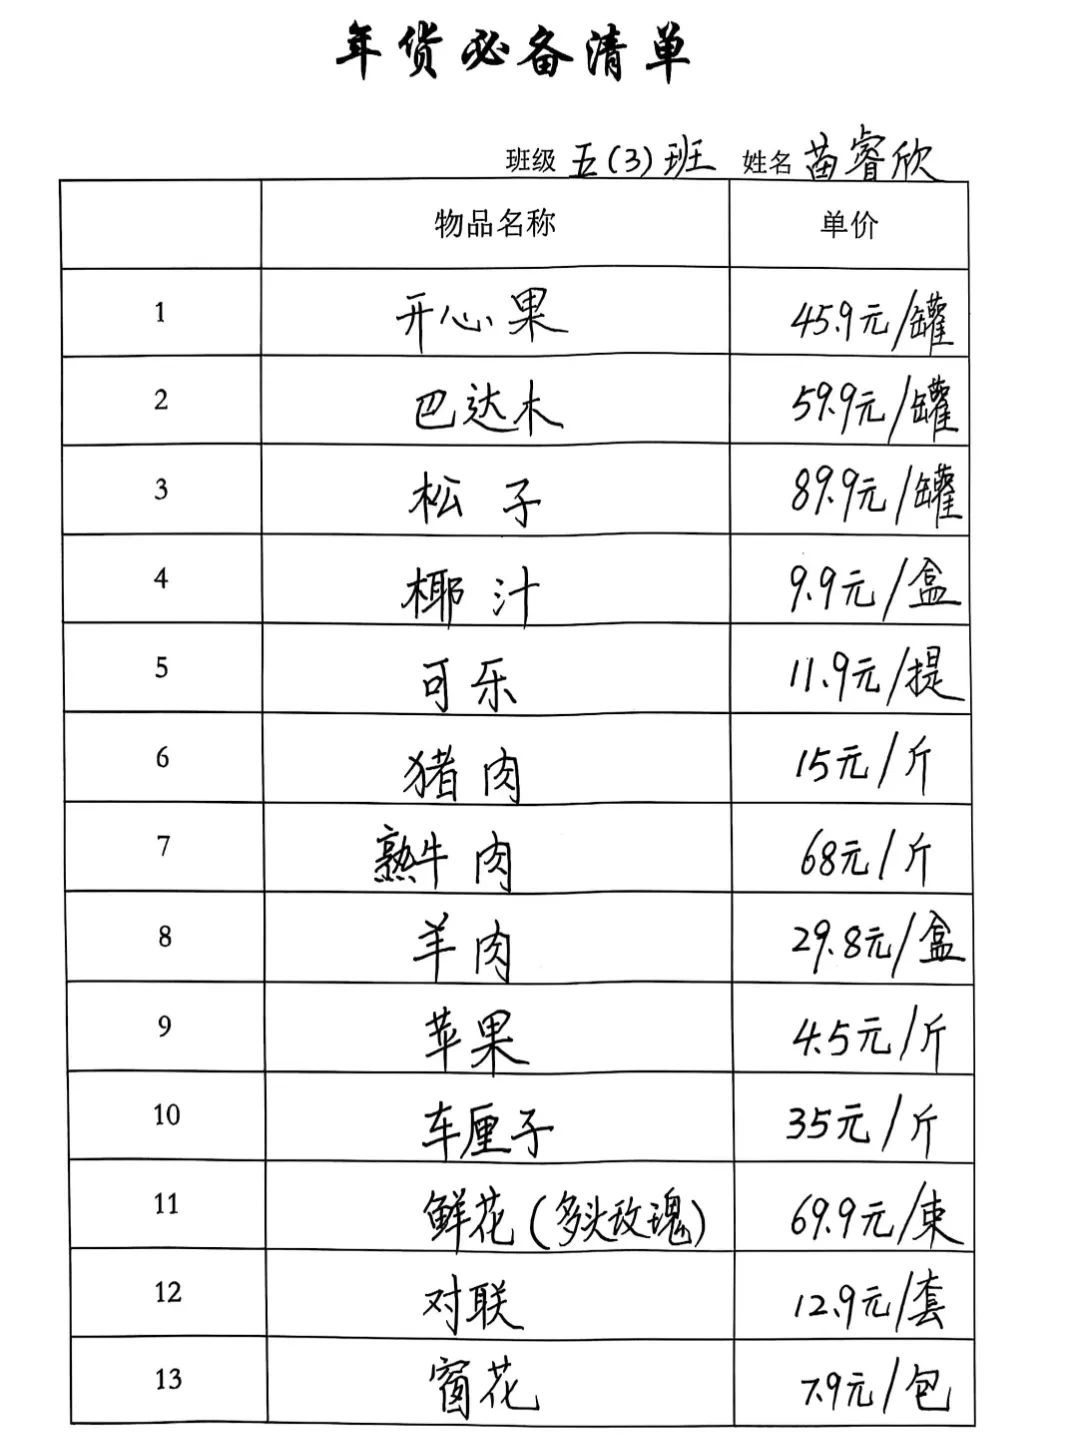 年货必备清单
班级 五(3)班 姓名 苗睿欣
物品名称 单价
1 开心果 45.9元/罐
2 巴达木 59.9元/罐
3 松子 89.9元/罐
4 椰汁 9.9元/盒
5 可乐 11.9元/提
6 猪肉 15元/斤
7 熟牛肉 68元/斤
8 羊肉 29.8元/盒
9 苹果 4.5元/斤
10 车厘子 35元/斤
11 鲜花(多头玫瑰) 69.9元/束
12 对联 12.9元/套
13 窗花 7.9元/包